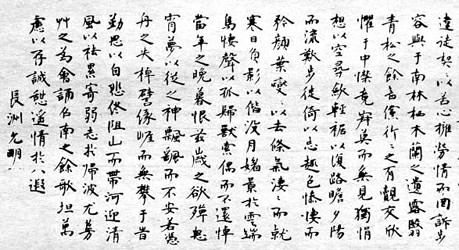 違徒契々以苦心擁勞情而罔訴步
容與于南林栖木蘭之遺露翳
青松之餘陰儻行々之有覿交欣
懼于中襟竟寂寞而無見獨悁
想以空尋斂輕裾以復路瞻夕陽
而流歎步徙倚以忘趣色悽悽而
矜顏葉燮々以去條氣淒々而就
寒日負影以偕没月媚景於雲端
鳥悽聲以孤歸獸索偶而不還悼
當年之晚暮恨茲歲之欲殫思
宵夢以從之神飄飄而不安若憑
舟之失棹譬緣崖而無攀于昔
勤思以自悲終阻山而帶河迎清
風以祛累寄弱志於歸波尤蔓
艸之為會誦召南之餘歌坦萬
慮以存誠憩遙情於八遐
長洲允明